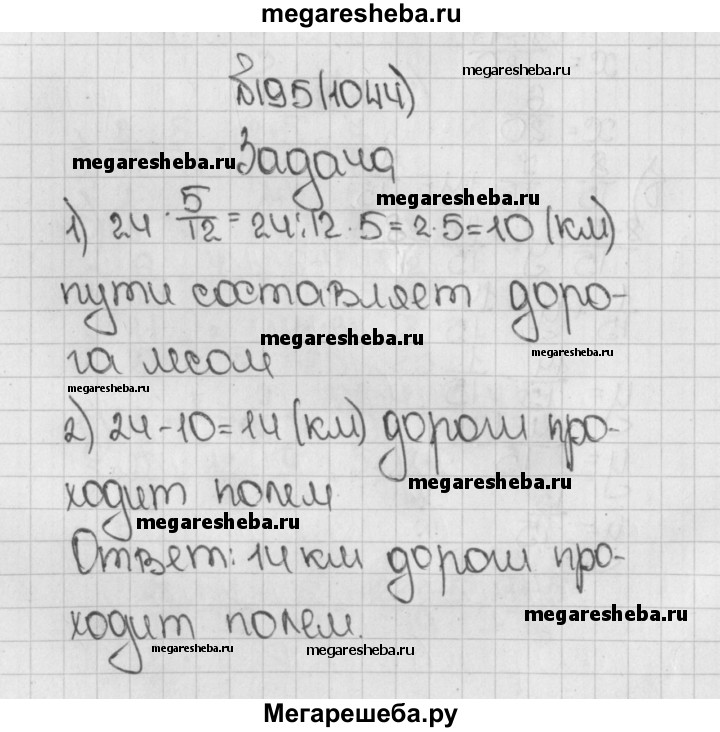 megaresheba.ru
№195(1044)
megaresheba.ru
Задача
megaresheba.ru
megaresheba.ru
1) 24 · 5/12 = 24:12·5=2·5=10 (км)
пути составляет доро-
megaresheba.ru
megaresheba.ru
га лесом
megaresheba.ru
2) 24-10=14 (км) дороги про-
megaresheba.ru
ходит полем
megaresheba.ru
Ответ: 14 км дороги про-
megaresheba.ru
ходит полем.
megaresheba.ru
megaresheba.ru
Мегарешеба.ру